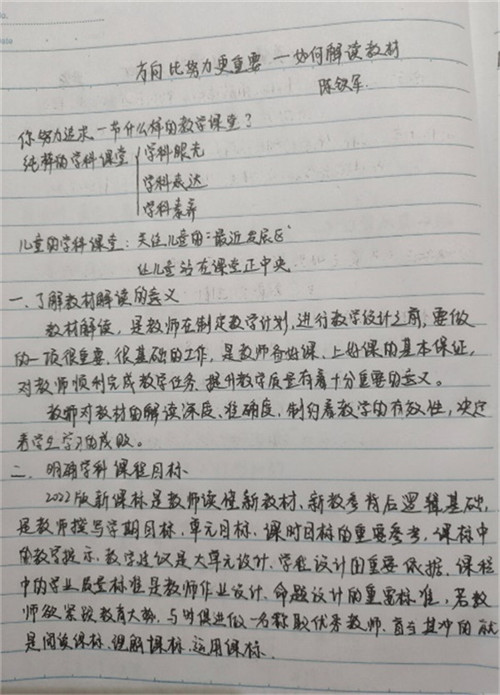 方向比努力更重要—如何解读教材
陈钗军
你努力追求一节什么样的教学课堂？
纯粹的学科课堂 学科眼光
学科表达
学科素养
儿童的学科课堂：关注儿童的"最近发展区"
让儿童站在课堂正中央
一.了解教材解读的意义
教材解读，是教师在制定教学计划,进行教学设计之前,要做
的一项很重要、很基础的工作，是教师备好课、上好课的基本保证,
对教师顺利完成教学任务、提升教学质量有着十分重要的意义。
教师对教材的解读深度、准确度，制约着教学的有效性，决定
着学生学习的成败。
二．明确学科课程目标
2022版新课标是教师读懂新教材、新教参背后逻辑基础，
是教师撰写学期目标、单元目标、课时目标的重要参考，课标中
的教学提示、教学建议是大单元设计、学程设计的重要依据，课程
中的学业质量标准是教师作业设计、命题设计的重要标准，若教
师欲紧跟教育大势，与时俱进做一名称职优秀教师，首当其冲的就
是阅读课标、理解课标、运用课标.